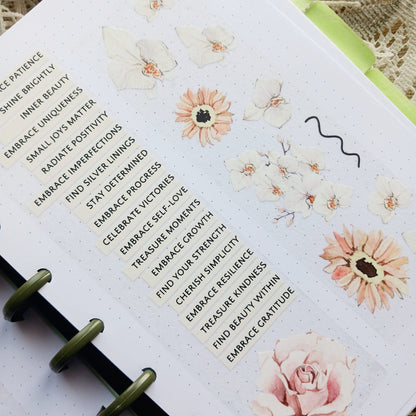 CE PATIENCE
SHINE BRIGHTLY
INNER BEAUTY
EMBRACE UNIQUENESS
SMALL JOYS MATTER
RADIATE POSITIVITY
EMBRACE IMPERFECTIONS
FIND SILVER LININGS
STAY DETERMINED
EMBRACE PROGRESS
CELEBRATE VICTORIES
EMBRACE SELF-LOVE
TREASURE MOMENTS
EMBRACE GROWTH
FIND YOUR STRENGTH
CHERISH SIMPLICITY
EMBRACE RESILIENCE
TREASURE KINDNESS
FIND BEAUTY WITHIN
EMBRACE GRATITUDE